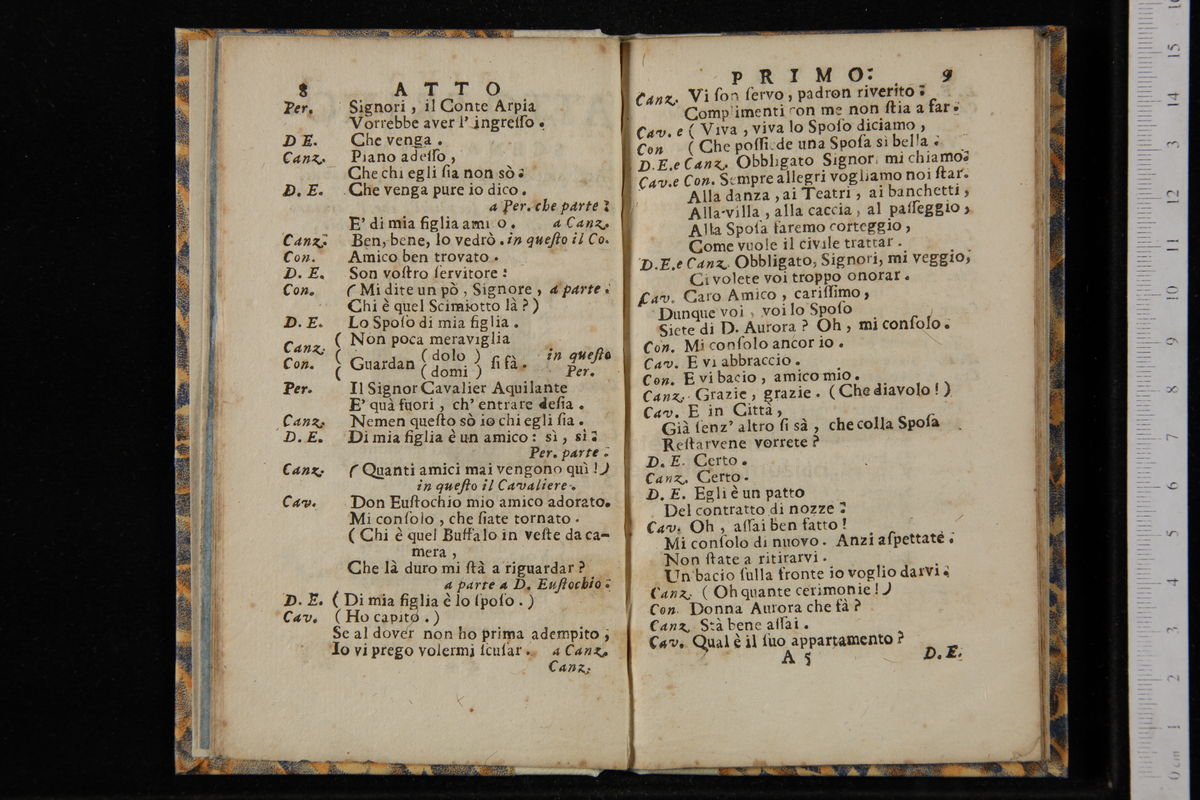 8 ATTO
Per. Signori, il Conte Arpia
Vorrebbe aver l' ingreſſo.
D E. Che venga.
Canz. Piano adeſſo,
Che chi egli ſia non sò:
D. E. Che venga pure io dico.
a Per. che parte:
E' di mia figlia ami o. a Canz.
Canz: Ben, bene, lo vedrò. in queſto il Co.
Con. Amico ben trovato.
D. E. Son voſtro ſervitore:
Con. (Mi dite un pò, Signore, a parte.
Chi è quel Scimiotto là?)
D. E. Lo Spoſo di mia figlia.
Canz. ( Non poca meraviglia
Con. ( Guardan (dolo) (domi) ſi fà. in queſto Per.
Per. Il Signor Cavalier Aquilante
E' quà fuori, ch' entrare deſia.
Canz. Nemen queſto sò io chi egli ſia.
D. E. Di mia figlia è un amico: sì, sì:
Per. parte.
Canz. (Quanti amici mai vengono quì!)
in queſto il Cavaliere.
Cav. Don Euſtochio mio amico adorato.
Mi conſolo, che ſiate tornato.
(Chi è quel Buffalo in veſte da ca-
mera,
Che là duro mi ſtà a riguardar?
a parte a D. Euſtochio:
D. E. (Di mia figlia è lo ſpoſo.)
Cav. (Ho capito.)
Se al dover non ho prima adempito,
Io vi prego volermi ſcuſar. a Canz.
Canz:
PRIMO: 9
Canz. Vi ſon ſervo, padron riverito:
Complimenti con me non ſtia a far.
Cav. e ( Viva, viva lo Spoſo diciamo,
Con ( Che poſſiede una Spoſa sì bella:
D. E. e Canz. Obbligato Signori mi chiamo:
Cav. e Con. Sempre allegri vogliamo noi ſtar.
Alla danza, ai Teatri, ai banchetti,
Alla villa, alla caccia, al paſſeggio,
Alla Spoſa faremo corteggio,
Come vuole il civile trattar.
D. E. e Canz. Obbligato, Signori, mi veggio,
Ci volete voi troppo onorar.
Cav. Caro Amico, cariſſimo,
Dunque voi, voi lo Spoſo
Siete di D. Aurora? Oh, mi conſolo.
Con. Mi conſolo ancor io.
Cav. E vi abbraccio.
Con. E vi bacio, amico mio.
Canz. Grazie, grazie. (Che diavolo!)
Cav. E in Città,
Già ſenz' altro ſi sà, che colla Spoſa
Reſtarvene vorrete?
D. E. Certo.
Canz. Certo.
D. E. Egli è un patto
Del contratto di nozze:
Cav. Oh, aſſai ben fatto!
Mi conſolo di nuovo. Anzi aſpettate.
Non ſtate a ritirarvi.
Un bacio ſulla fronte io voglio darvi.
Canz. (Oh quante cerimonie!)
Con. Donna Aurora che fà?
Canz Stà bene aſſai.
Cav. Qual è il ſuo appartamento?
A 5 D. E.